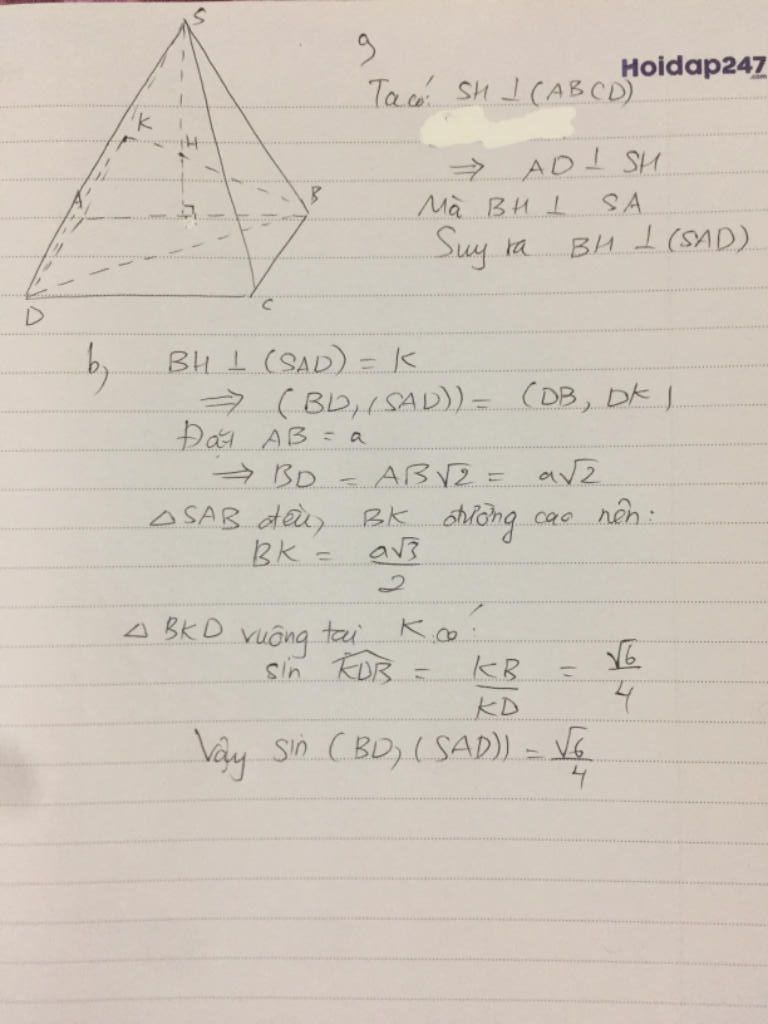 S
K
H
A
B
D
C
a,
Hoidap247
.com
Ta có: SH ⊥ (ABCD)
⇒ AD ⊥ SH
Mà BH ⊥ SA
Suy ra BH ⊥ (SAD)
b, BH ⊥ (SAD) = K
⇒ (BD, (SAD)) = (DB, DK)
Đặt AB = a
⇒ BD = AB√2 = a√2
△ SAB đều, BK đường cao nên:
BK = a√3/2
△ BKD vuông tại K có:
sin KDB = KB/KD = √6/4
Vậy sin (BD, (SAD)) = √6/4